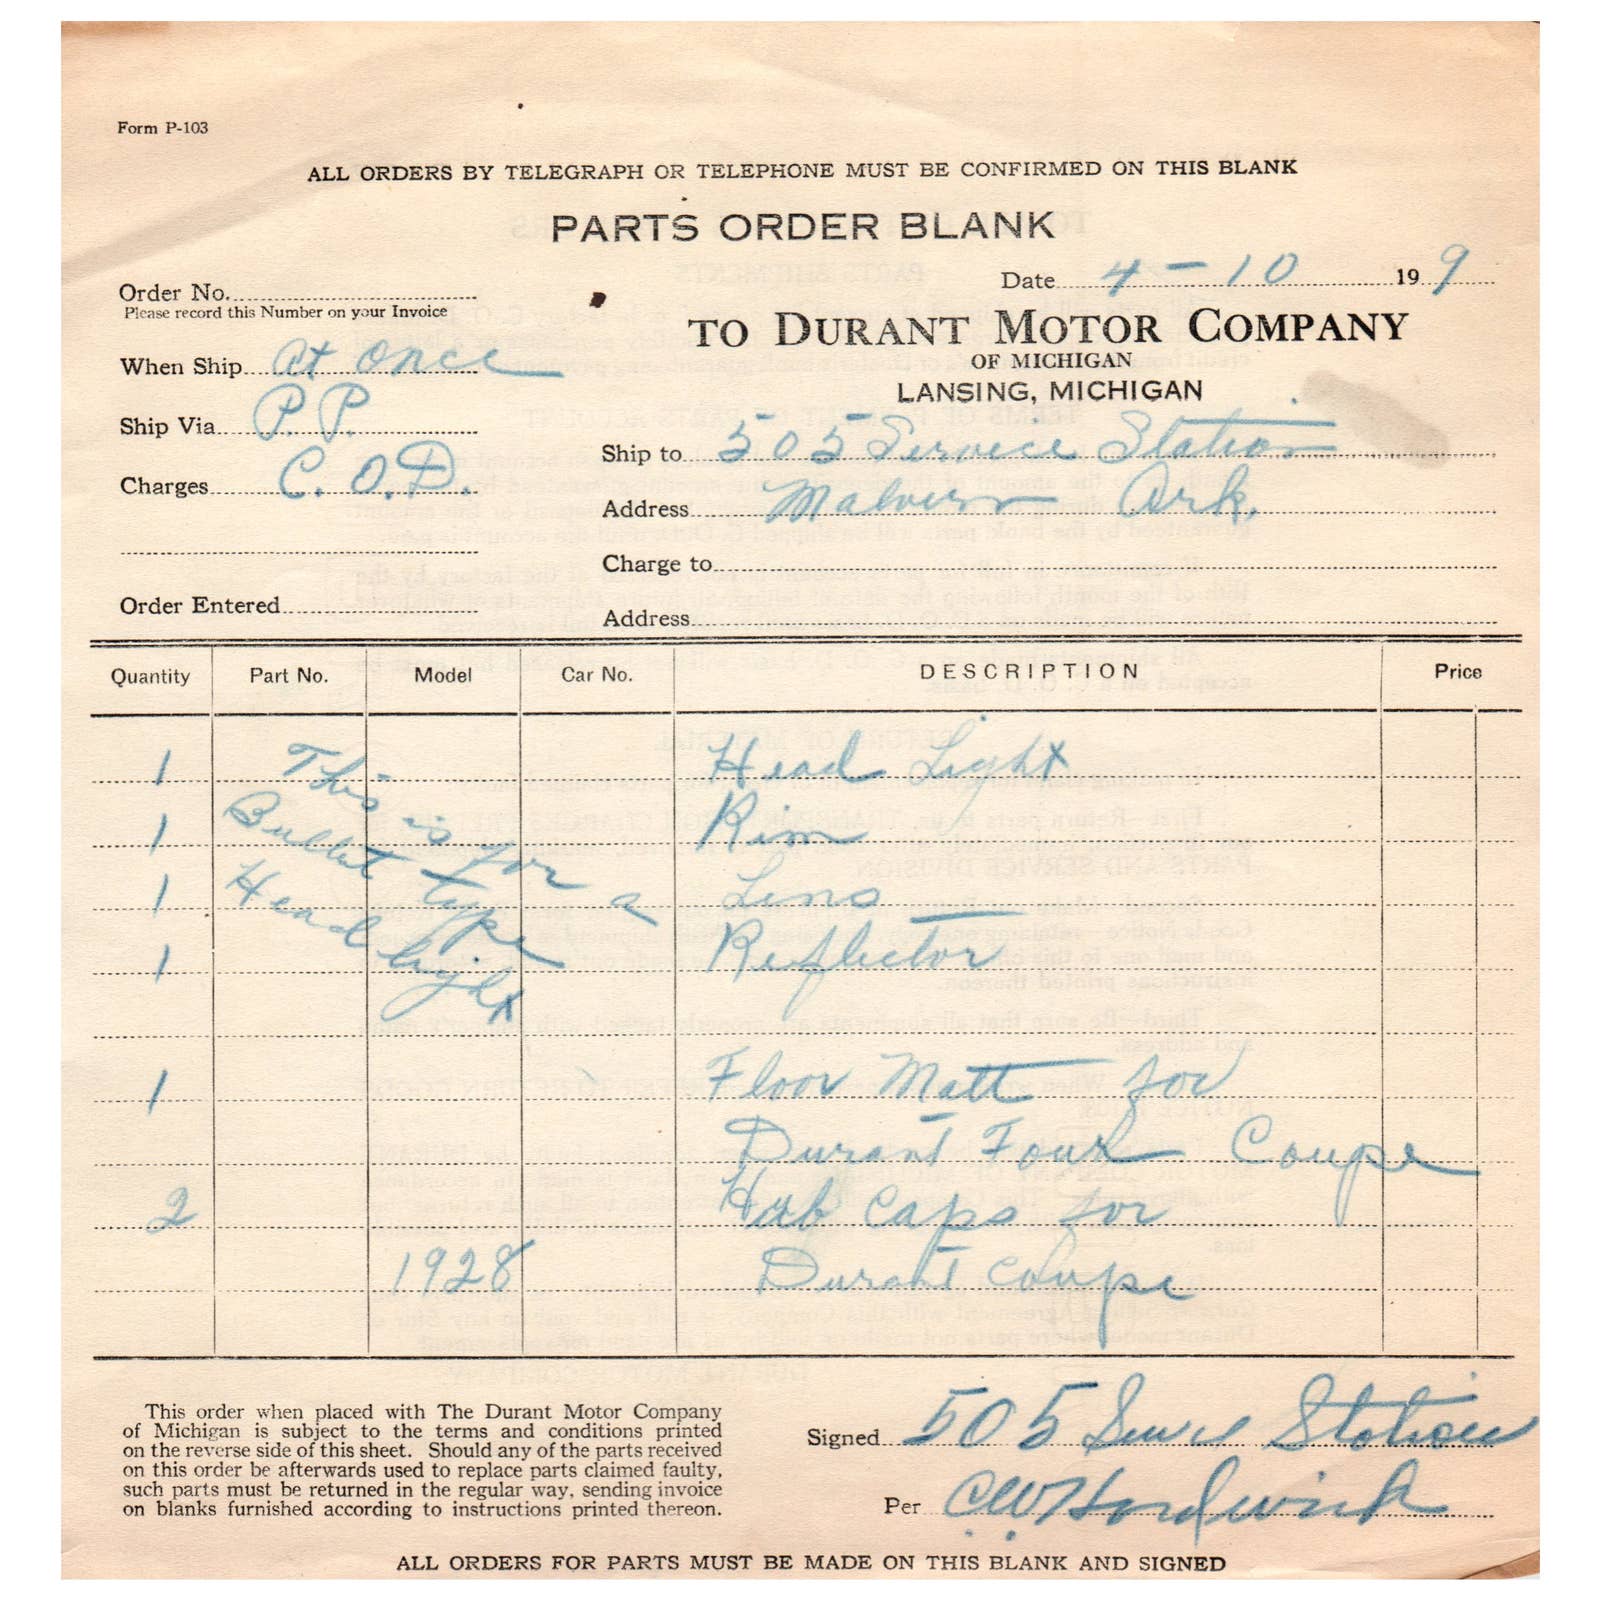 Form P-103
ALL ORDERS BY TELEGRAPH OR TELEPHONE MUST BE CONFIRMED ON THIS BLANK
PARTS ORDER BLANK
Date 4-10 19 9
Order No.
Please record this Number on your Invoice
TO DURANT MOTOR COMPANY
OF MICHIGAN
LANSING, MICHIGAN
When Ship At Once
Ship Via P.P.
Charges C.O.D.
Ship to 505 Service Station
Address Malvern Ark.
Charge to
Order Entered
Address
Quantity Part No. Model Car No. DESCRIPTION Price
1 Head Light
1 Rim
1 Lens
1 Reflector
This is for a
Bullet type
Head light
1 Floor Matt for
Durant Four Coupe
2 Hub Caps for
1928 Durant Coupe
This order when placed with The Durant Motor Company
of Michigan is subject to the terms and conditions printed
on the reverse side of this sheet. Should any of the parts received
on this order be afterwards used to replace parts claimed faulty,
such parts must be returned in the regular way, sending invoice
on blanks furnished according to instructions printed thereon.
Signed 505 Service Station
Per C.W. Hardwick
ALL ORDERS FOR PARTS MUST BE MADE ON THIS BLANK AND SIGNED